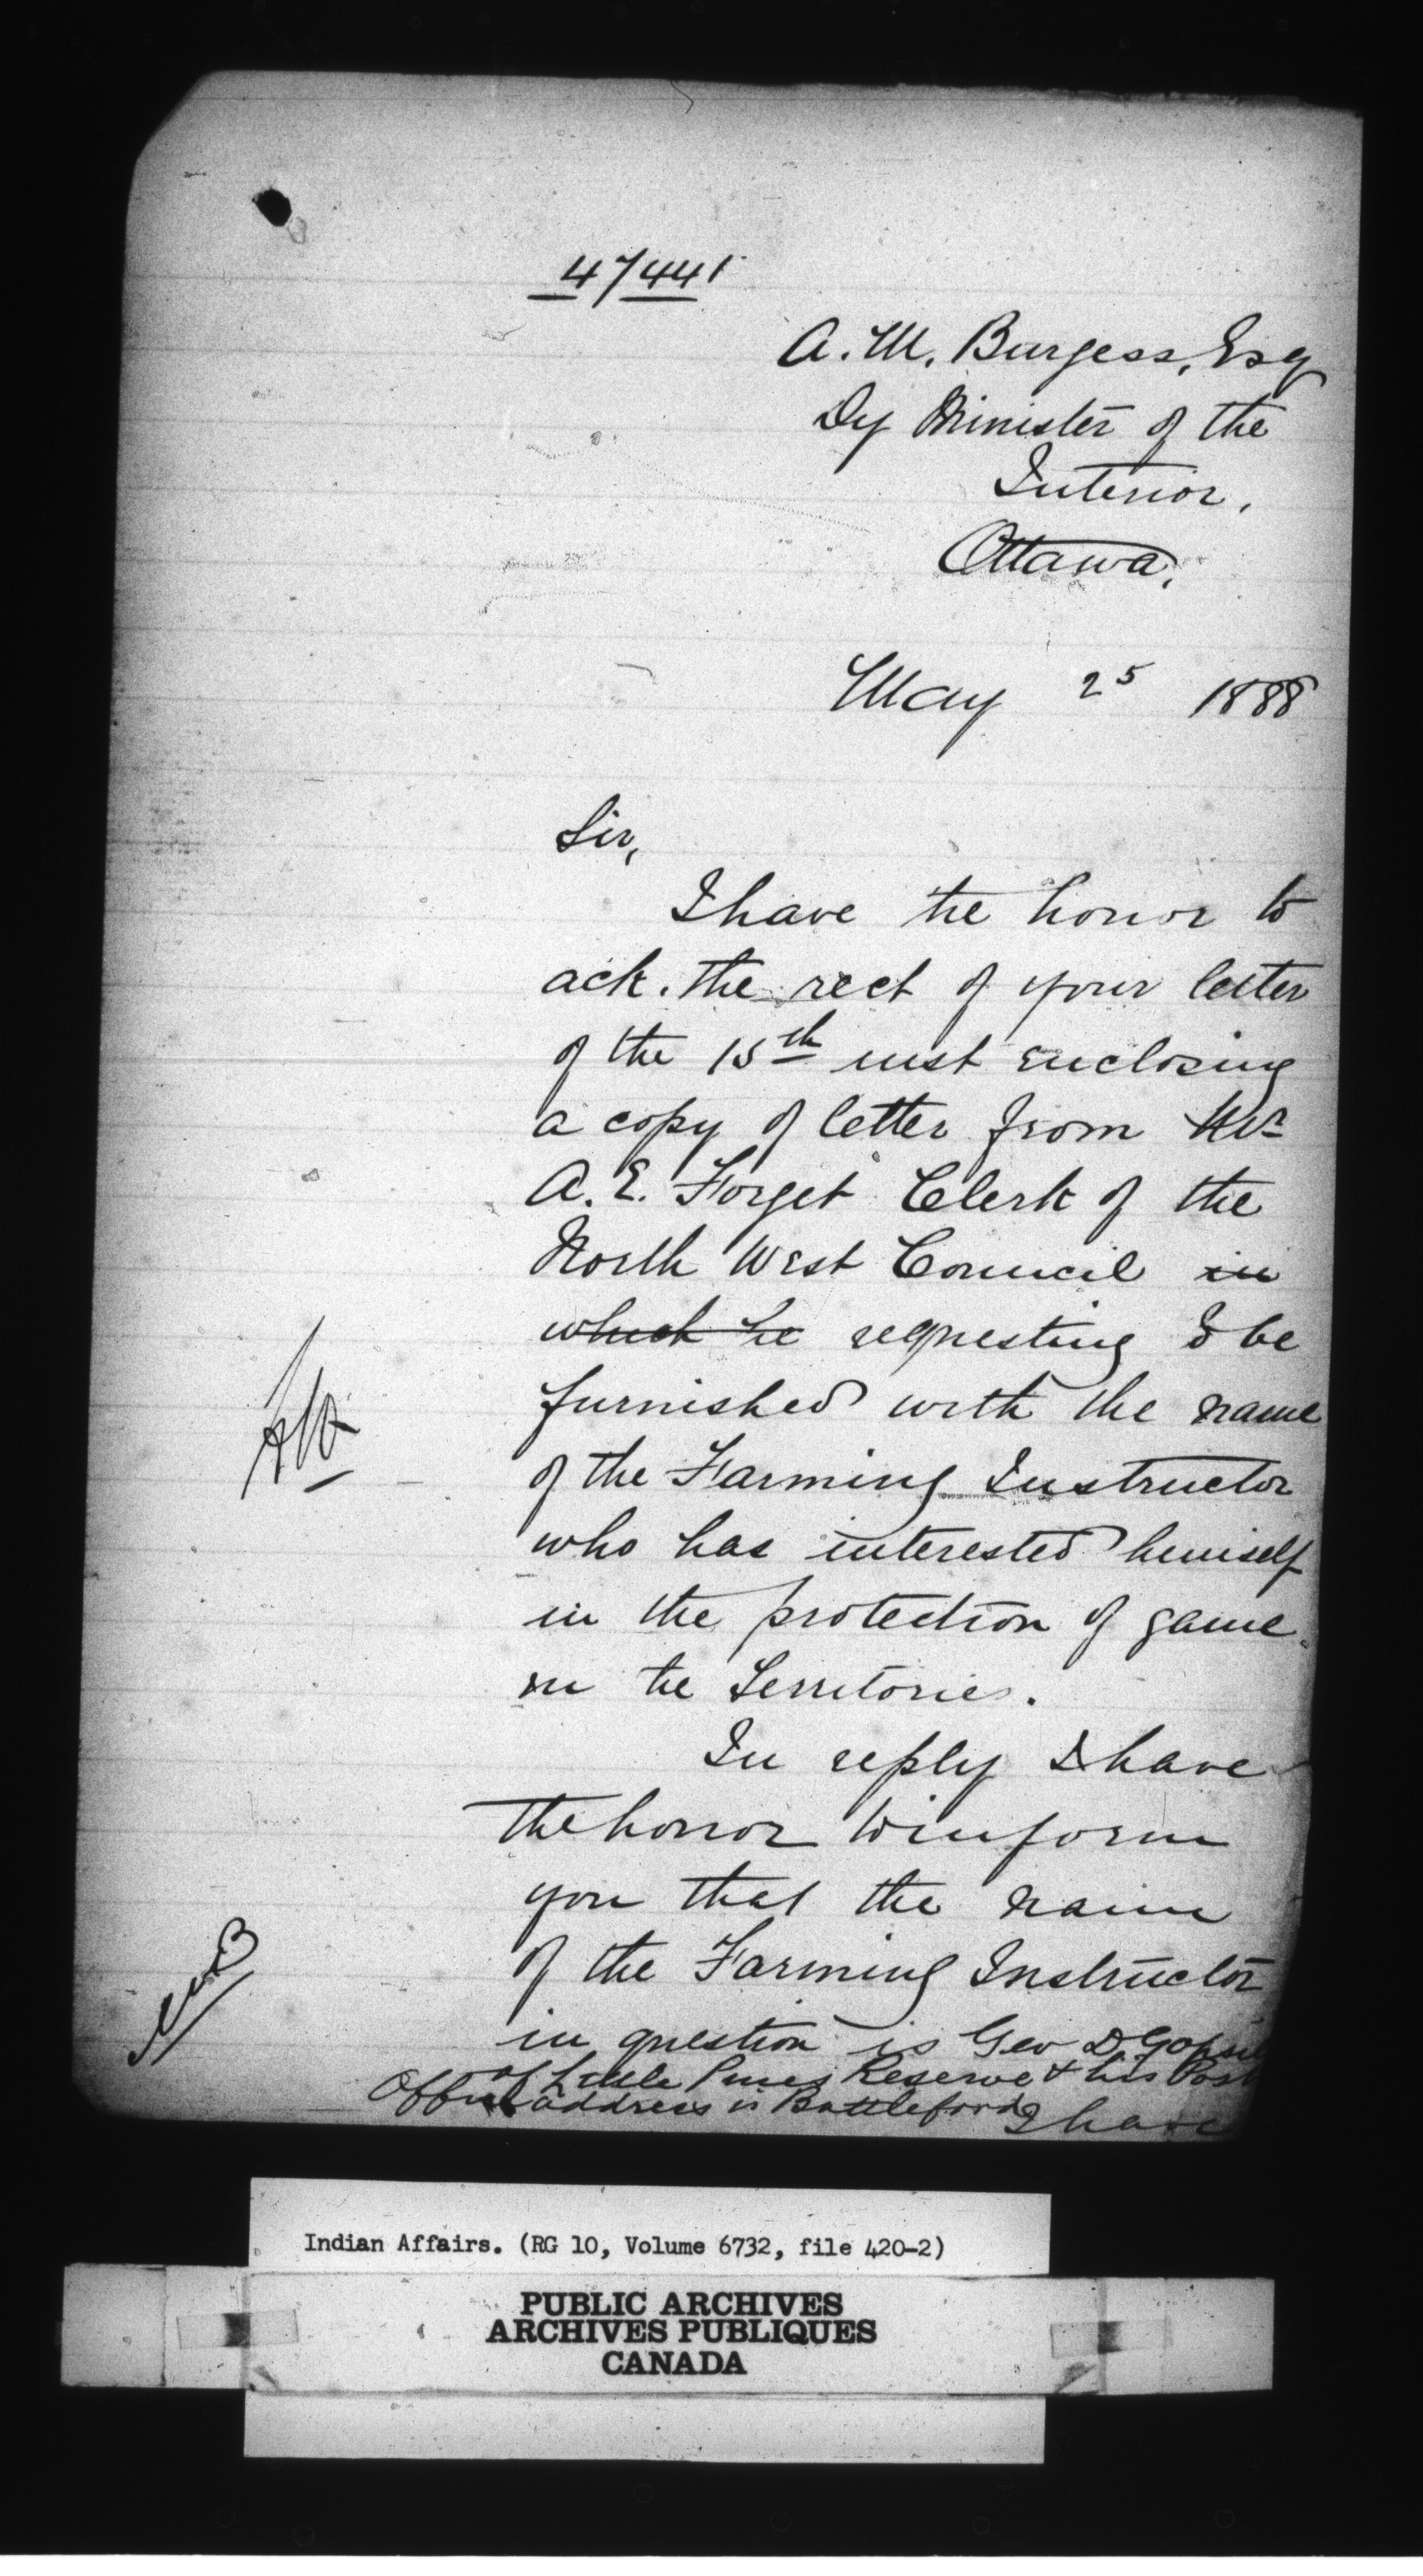 47441
A. M. Burgess, Esq
Dy Minister of the
Interior,
Ottawa.
May 25 1888
Sir,
I have the honor to
ack. the rect of your letter
of the 15th inst enclosing
a copy of letter from Mr
A. E. Forget Clerk of the
North West Council in
which he requesting to be
furnished with the name
of the Farming Instructor
who has interested himself
in the protection of game
in the Territories.
In reply I have
the honor to inform
you that the name
of the Farming Instructor
in question is Geo D Gopsil
of Little Pines Reserve & his Post
Office address is Battleford
I have
Indian Affairs. (RG 10, Volume 6732, file 420-2)
PUBLIC ARCHIVES
ARCHIVES PUBLIQUES
CANADA